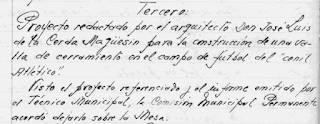 Tercero:
Proyecto redactado por el arquitecto Don José Luis
de la Cerda Magüesin para la construcción de una va-
lla de cerramiento en el campo de futbol del "conil
Atlético".
Visto el proyecto referenciado y el informe emitido por
el Técnico Municipal, la Comisión Municipal Permanente
acordó dejarlo sobre la Mesa.